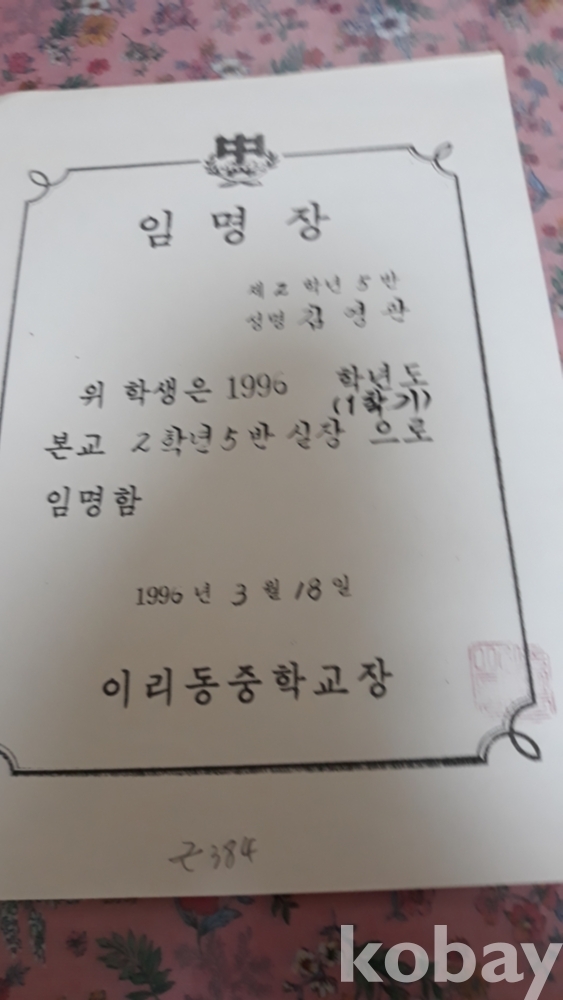 中
임명장
제 2 학년 5 반
성명 김영관
위 학생은 1996 학년도
(1학기)
본교 2학년5반 실장 으로
임명함
1996 년 3 월 18 일
이리동중학교장
384
kobay